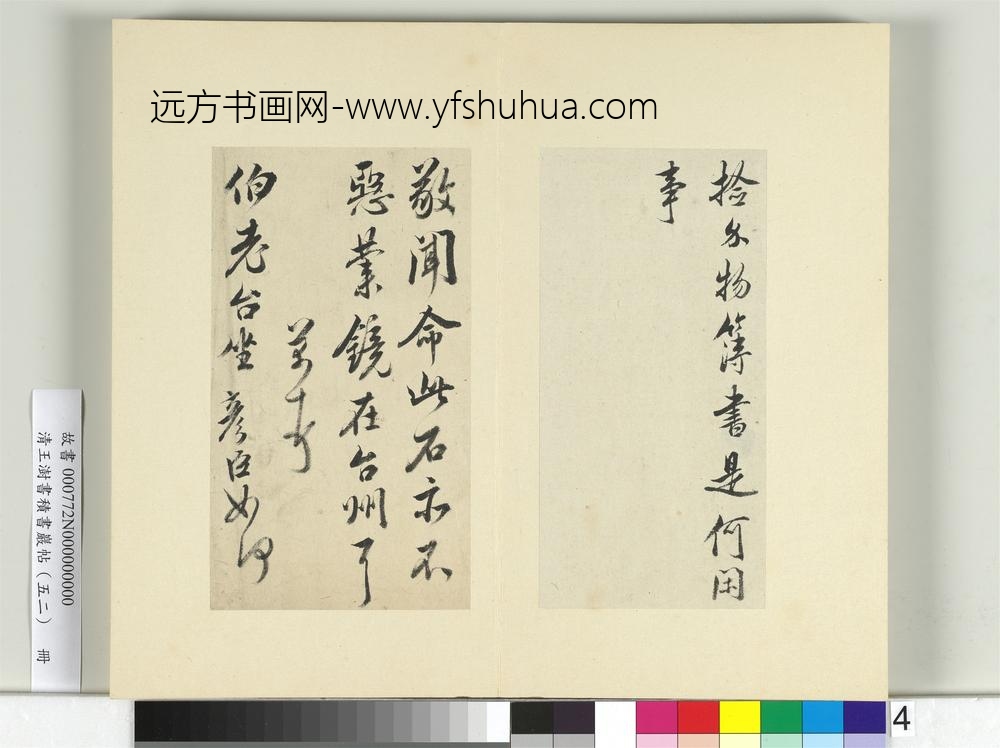 远方书画网-www.yfshuhua.com
拾分物簿書是何閑
事
敬聞命此石亦不
惡業鏡在台州了
伯老台坐彥臣
故書 000772N000000000
清王澍書積書巖帖（五二） 冊
4